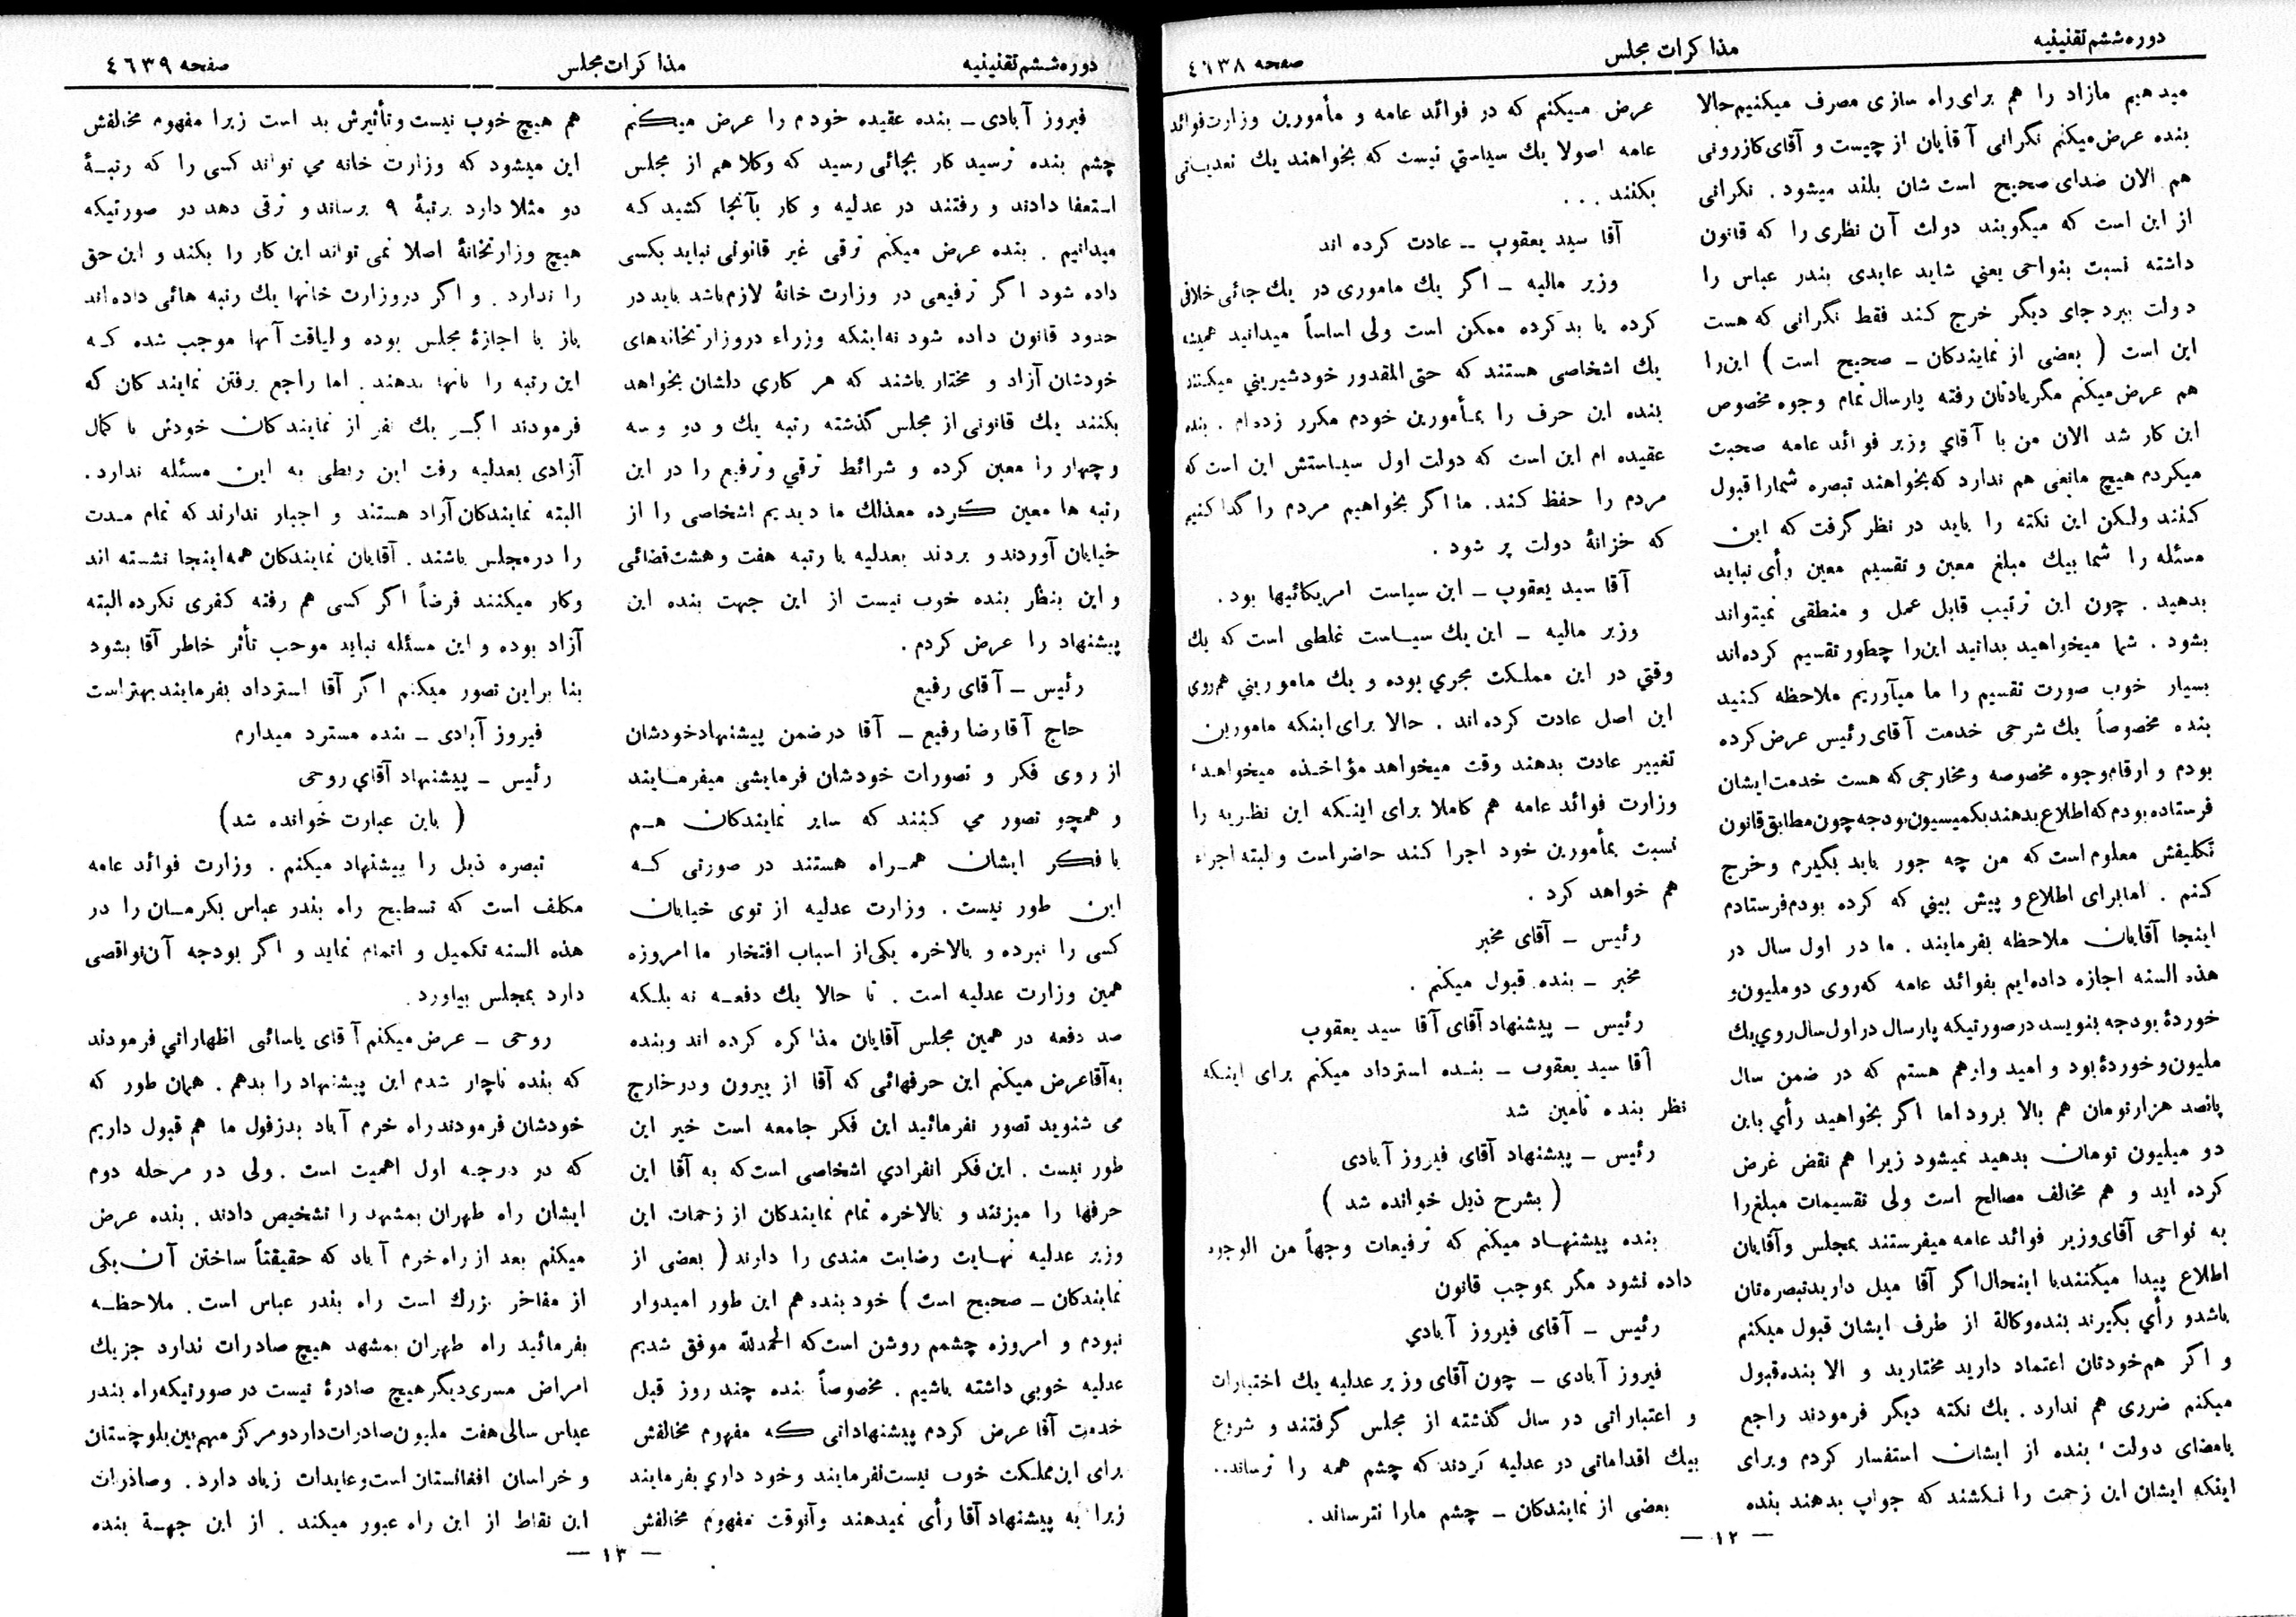 دوره ششم تقنینیه
مذاکرات مجلس
صفحه ٤٦٣٨
میدهیم مازاد را هم برای راه سازی مصرف میکنیم حالا
بنده عرض میکنم نگرانی آقایان از چیست و آقای کازرونی
هم الان صدای صحیح است شان بلند میشود . نگرانی
از این است که میگویند دولت آن نظری را که قانون
داشته نسبت بنواحی یعنی شاید عایدی بندر عباس را
دولت ببرد جای دیگر خرج کند فقط نگرانی که هست
این است ( بعضی از نمایندکان ـ صحیح است ) این را
هم عرض میکنم مگر یادتان رفته پارسال تمام وجوه مخصوص
این کار شد الان من با آقای وزیر فوائد عامه صحبت
میکردم هیچ مانعی هم ندارد که بخواهند تبصره شمارا قبول
کنند ولیکن این نکته را باید در نظر گرفت که این
مسئله را شما بیك مبلغ معین و تقسیم معین رأی نباید
بدهید . چون این ترتیب قابل عمل و منطقی نمیتواند
بشود . شما میخواهید بدانید این را چطور تقسیم کرده اند
بسیار خوب صورت تقسیم را ما میآوریم ملاحظه کنید
بنده مخصوصاً یك شرحی خدمت آقای رئیس عرض کرده
بودم و ارقام وجوه مخصوصه و مخارجی که هست خدمت ایشان
فرستاده بودم که اطلاع بدهند بکمیسیون بودجه چون مطابق قانون
تکلیفش معلوم است که من چه جور باید بگیرم و خرج
کنم . اما برای اطلاع و پیش بینی که کرده بودم فرستادم
اینجا آقایان ملاحظه بفرمایند . ما در اول سال در
هذه السنه اجازه داده ایم بفوائد عامه که روی دو ملیون و
خوردهٔ بودجه بنویسد در صورتیکه پارسال در اول سال روی یك
ملیون و خوردهٔ بود و امید وارهم هستم که در ضمن سال
پانصد هزار تومان هم بالا برود اما اگر بخواهید رأی باین
دو میلیون تومان بدهید نمیشود زیرا هم نقض غرض
کرده اید و هم مخالف مصالح است ولی تقسیمات مبلغ را
به نواحی آقای وزیر فوائد عامه میفرستند بمجلس و آقایان
اطلاع پیدا میکنند با اینحال اگر آقا میل دارید تبصره تان
باشد و رأی بگیرند بنده وکالة از طرف ایشان قبول میکنم
و اگر هم خودتان اعتماد دارید مختارید و الا بنده قبول
میکنم ضرری هم ندارد . یك نکته دیگر فرمودند راجع
بامضای دولت ، بنده از ایشان استفسار کردم و برای
اینکه ایشان این زحمت را نکشند که جواب بدهند بنده
عرض میکنم که در فوائد عامه و مأمورین وزارت فوائد
عامه اصولا یك سیاستی نیست که بخواهند یك تعدیاتی
بکنند ...
آقا سید یعقوب ــ عادت کرده اند
وزیر مالیه ـ اگر یك ماموری در یك جائی خلافی
کرده یا بد کرده ممکن است ولی اساساً میدانید همیشه
یك اشخاصی هستند که حتی المقدور خودشیرینی میکنند
بنده این حرف را بمأمورین خودم مکرر زده ام . بنده
عقیده ام این است که دولت اول سیاستش این است که
مردم را حفظ کند . ما اگر بخواهیم مردم را گدا کنیم
که خزانهٔ دولت پر شود .
آقا سید یعقوب ـ این سیاست امریکائیها بود .
وزیر مالیه ـ این یك سیاست غلطی است که یك
وقتی در این مملکت مجری بوده و یك مامورینی هم روی
این اصل عادت کرده اند . حالا برای اینکه مامورین
تغییر عادت بدهند وقت میخواهد مؤاخذه میخواهد ،
وزارت فوائد عامه هم کاملا برای اینکه این نظریه را
نسبت بمأمورین خود اجرا کند حاضر است و البته اجراء
هم خواهد کرد .
رئیس ـ آقای مخبر
مخبر ـ بنده قبول میکنم .
رئیس ـ پیشنهاد آقای آقا سید یعقوب
آقا سید یعقوب ـ بنده استرداد میکنم برای اینکه
نظر بنده تأمین شد
رئیس ـ پیشنهاد آقای فیروز آبادی
( بشرح ذیل خوانده شد )
بنده پیشنهاد میکنم که ترفیعات وجهاً من الوجوه
داده نشود مگر بموجب قانون
رئیس ـ آقای فیروز آبادی
فیروز آبادی ـ چون آقای وزیر عدلیه یك اختیارات
و اعتباراتی در سال گذشته از مجلس گرفتند و شروع
بیك اقداماتی در عدلیه کردند که چشم همه را ترساند..
بعضی از نمایندکان ـ چشم مارا نترساند .
— ۱۲ —
دوره ششم تقنینیه
مذاکرات مجلس
صفحه ٤٦٣٩
فیروز آبادی ـ بنده عقیده خودم را عرض میکنم
چشم بنده ترسید کار بجائی رسید که وکلا هم از مجلس
استعفا دادند و رفتند در عدلیه و کار بآنجا کشید که
میدانیم . بنده عرض میکنم ترقی غیر قانونی نباید بکسی
داده شود اگر ترفیعی در وزارت خانهٔ لازم باشد باید در
حدود قانون داده شود نه اینکه وزراء در وزارتخانه های
خودشان آزاد و مختار باشند که هر کاری دلشان بخواهد
بکنند یك قانونی از مجلس گذشته رتبه یك و دو و سه
و چهار را معین کرده و شرائط ترقی و ترفیع را در این
رتبه ها معین کرده معذلك ما دیدیم اشخاصی را از
خیابان آوردند و بردند بعدلیه با رتبه هفت و هشت قضائی
و این بنظر بنده خوب نیست از این جهت بنده این
پیشنهاد را عرض کردم .
رئیس ـ آقای رفیع
حاج آقا رضا رفیع ـ آقا در ضمن پیشنهاد خودشان
از روی فکر و تصورات خودشان فرمایشی میفرمایند
و همچو تصور می کنند که سایر نمایندکان هم
با فکر ایشان همراه هستند در صورتی که
این طور نیست . وزارت عدلیه از توی خیابان
کسی را نبرده و بالاخره یکی از اسباب افتخار ما امروزه
همین وزارت عدلیه است . تا حالا یك دفعه نه بلکه
صد دفعه در همین مجلس آقایان مذاکره کرده اند و بنده
به آقا عرض میکنم این حرفهائی که آقا از بیرون و در خارج
می شنوید تصور نفرمائید این فکر جامعه است خیر این
طور نیست . این فکر انفرادی اشخاصی است که به آقا این
حرفها را میزنند و بالاخره تمام نمایندکان از زحمات این
وزیر عدلیه نهایت رضایت مندی را دارند ( بعضی از
نمایندکان ـ صحیح است ) خود بنده هم این طور امیدوار
نبودم و امروزه چشمم روشن است که الحمدلله موفق شدیم
عدلیه خوبی داشته باشیم . مخصوصاً بنده چند روز قبل
خدمت آقا عرض کردم پیشنهاداتی که مفهوم مخالفش
برای این مملکت خوب نیست نفرمایند و خود داری بفرمایند
زیرا به پیشنهاد آقا رأی نمیدهند و آنوقت مفهوم مخالفش
هم هیچ خوب نیست و تأثیرش بد است زیرا مفهوم مخالفش
این میشود که وزارت خانه می تواند کسی را که رتبهٔ
دو مثلا دارد برتبهٔ ۹ برساند و ترقی دهد در صورتیکه
هیچ وزارتخانهٔ اصلا نمی تواند این کار را بکند و این حق
را ندارد . و اگر در وزارت خانها یك رتبه هائی داده اند
باز با اجازهٔ مجلس بوده و لیاقت آنها موجب شده که
این رتبه را بآنها بدهند . اما راجع برفتن نمایندکان که
فرمودند اگر یك نفر از نمایندکان خودش با کمال
آزادی بعدلیه رفت این ربطی به این مسئله ندارد .
البته نمایندکان آزاد هستند و اجبار ندارند که تمام مدت
را در مجلس باشند . آقایان نمایندکان همه اینجا نشسته اند
و کار میکنند فرضاً اگر کسی هم رفته کفری نکرده البته
آزاد بوده و این مسئله نباید موجب تأثر خاطر آقا بشود
بنا بر این تصور میکنم اگر آقا استرداد بفرمایند بهتر است
فیروز آبادی ـ بنده مسترد میدارم
رئیس ـ پیشنهاد آقای روحی
( باین عبارت خوانده شد )
تبصره ذیل را پیشنهاد میکنم . وزارت فوائد عامه
مکلف است که تسطیح راه بندر عباس بکرمان را در
هذه السنه تکمیل و اتمام نماید و اگر بودجه آن نواقصی
دارد بمجلس بیاورد .
روحی ـ عرض میکنم آقای یاسائی اظهاراتی فرمودند
که بنده ناچار شدم این پیشنهاد را بدهم . همان طور که
خودشان فرمودند راه خرم آباد بدزفول ما هم قبول داریم
که در درجه اول اهمیت است . ولی در مرحله دوم
ایشان راه طهران بمشهد را تشخیص دادند . بنده عرض
میکنم بعد از راه خرم آباد که حقیقتاً ساختن آن یکی
از مفاخر بزرك است راه بندر عباس است . ملاحظه
بفرمائید راه طهران بمشهد هیچ صادرات ندارد جز یك
امراض مسری دیگر هیچ صادرهٔ نیست در صورتیکه راه بندر
عباس سالی هفت ملیون صادرات دارد و مرکز مهم بین بلوچستان
و خراسان افغانستان است و عایدات زیاد دارد . و صادرات
این نقاط از این راه عبور میکند . از این جهة بنده
— ۱۳ —